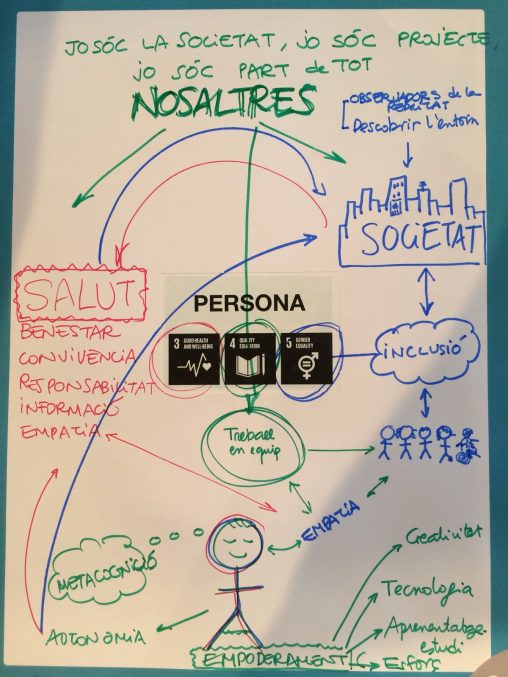 JO SÓC LA SOCIETAT, JO SÓC PROJECTE
JO SÓC PART de TOT
NOSALTRES
OBSERVADORS de la
REALITAT
Descobrir l'entorn
SOCIETAT
SALUT
BENESTAR
CONVIVENCIA
RESPONSABILITAT
INFORMACIÓ
EMPATIA
PERSONA
3 GOOD HEALTH
AND WELL-BEING
4 QUALITY
EDUCATION
5 GENDER
EQUALITY
INCLUSIÓ
Treball
en equip
EMPATIA
METACOGNICIÓ
AUTONOMIA
EMPODERAMENT
Creativitat
Tecnologia
Aprenentatge
estudi
Esforç